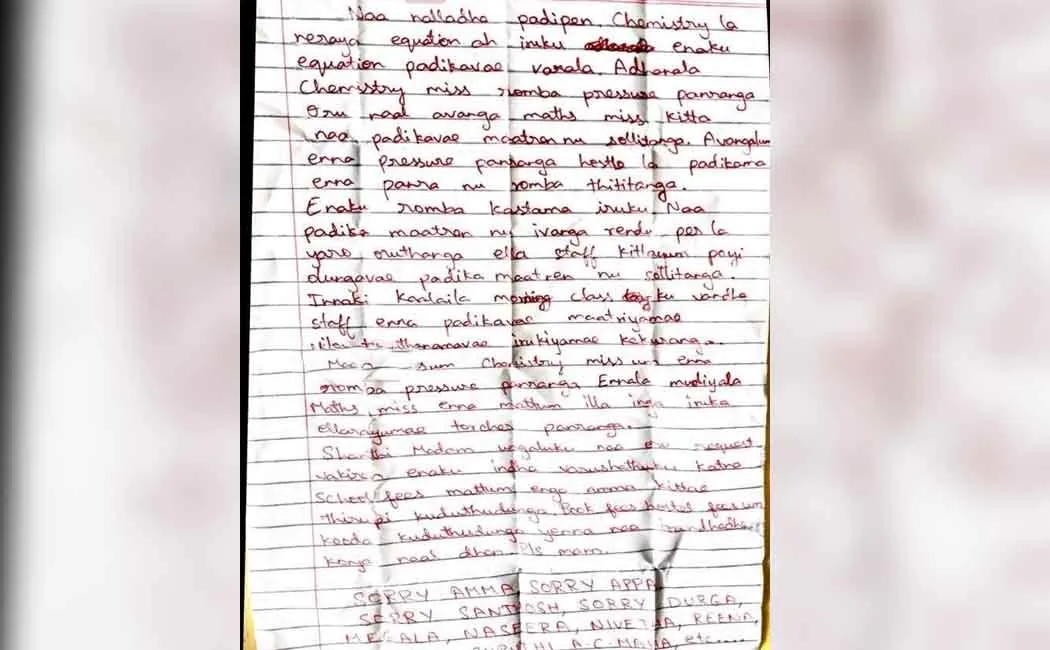 Naa nalladha padipen. Chemistry la
neraya equation ah iruku enaku
equation padikavae varala. Adhanala
Chemistry miss romba pressure panranga
Oru naal avanga maths miss kitta
naa padikavae maatren nu sollitanga. Avangalum
enna pressure panranga hostle la padikama
enna panra nu romba thititanga.
Enaku romba kastama iruku. Naa
padika maatren nu ivanga rendu per la
yaro oruthanga ella staff kitlayum poyi
dungavae padika maatren nu sollitanga.
Innaki kaalaila morning class ku vandha
staff enna padikavae maatriyamae
irukiyamae kekuranga.
sum Chemistry miss um enna
romba pressure panranga Ennala mudiyala
Maths miss enna mattum illa inga iruka
ellarayumae torcher panranga.
Shanthi Madam ungaluku naa oru request
vakiren enaku indha varushathuku katna
School fees mattum enga amma kittae
thirupi kuduthudunga Book fees hostel fees um
kooda kuduthudunga yenna naa irundhadhu
konja naal dhan Pls mam.
SORRY AMMA SORRY APPA
SORRY SANTHOSH, SORRY DURGA,
MEGALA, NASEERA, NIVETHA, REENA,
A.C. MAHA, etc....